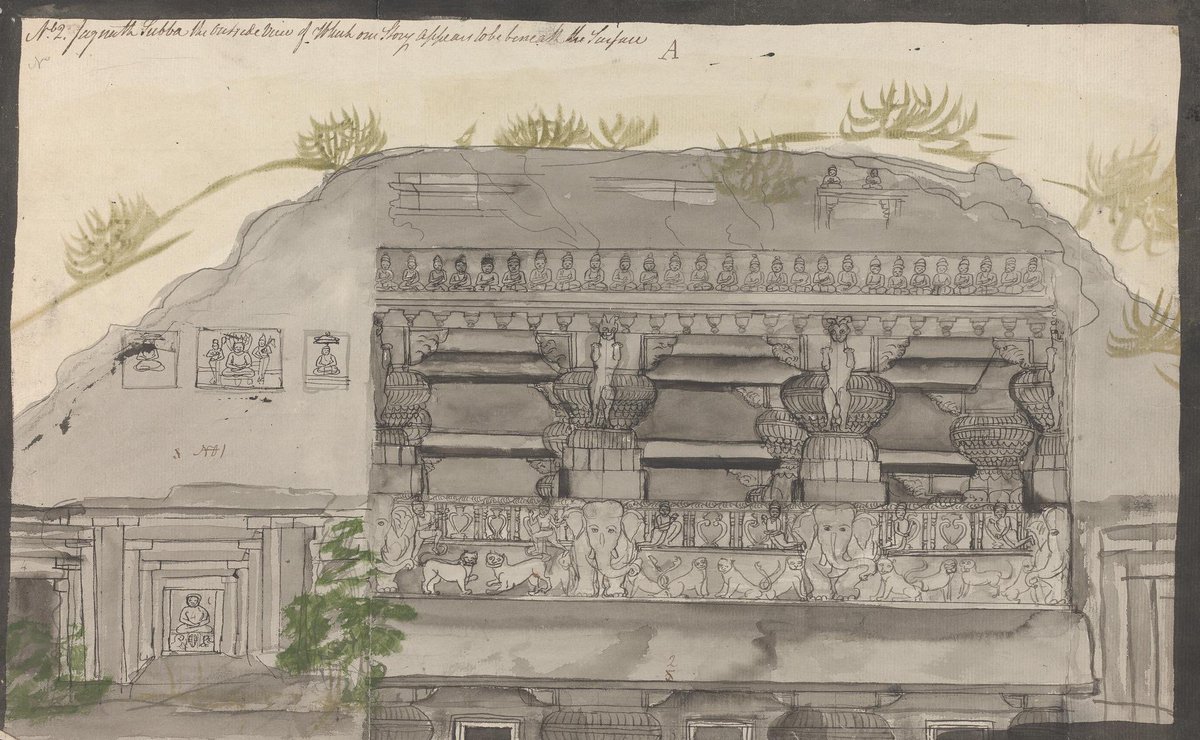 No. 2. Jagnnath Subba the outside View of Which one Story appears to be beneath the Surface
A
No
No 1
2